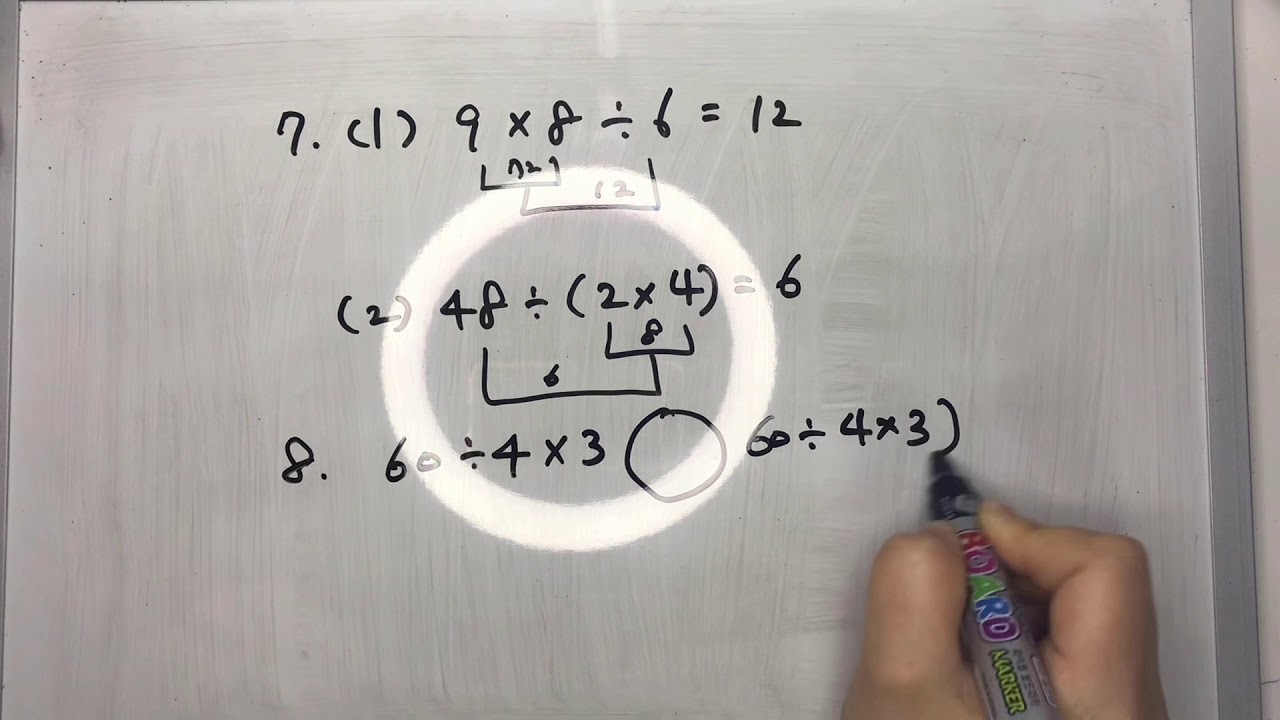 7. (1) 9 × 8 ÷ 6 = 12
72
12
(2) 48 ÷ (2 × 4) = 6
8
6
8. 60 ÷ 4 × 3 ◯ 60 ÷ 4 × 3)
BOARD
MARKER